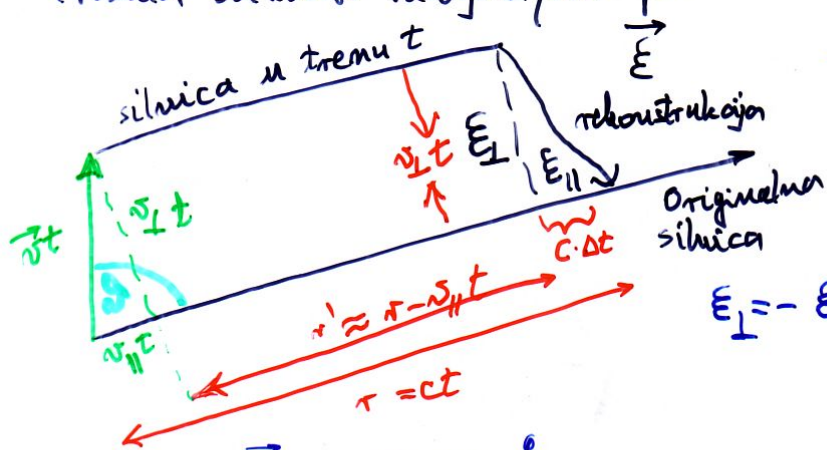 silnica u trenu t
ℰ⃗
rekonstrukcija
v⊥t
ℰ⊥
ℰ∥
Originalna
silnica
c·Δt
v⃗t
v⊥t
ϑ
v∥t
r' ≈ r - v∥t
r = ct
ℰ⊥ = - ℰ